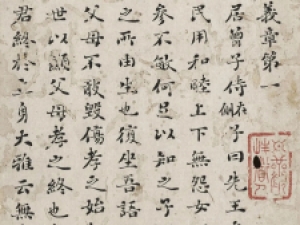 義章第一
居曾子侍側子曰先王
民用和睦上下無怨女
參不敏何足以知之子
之所由生也復坐吾語
父母不敢毀傷孝之始
世以顯父母孝之終也
君終於立身大雅云無